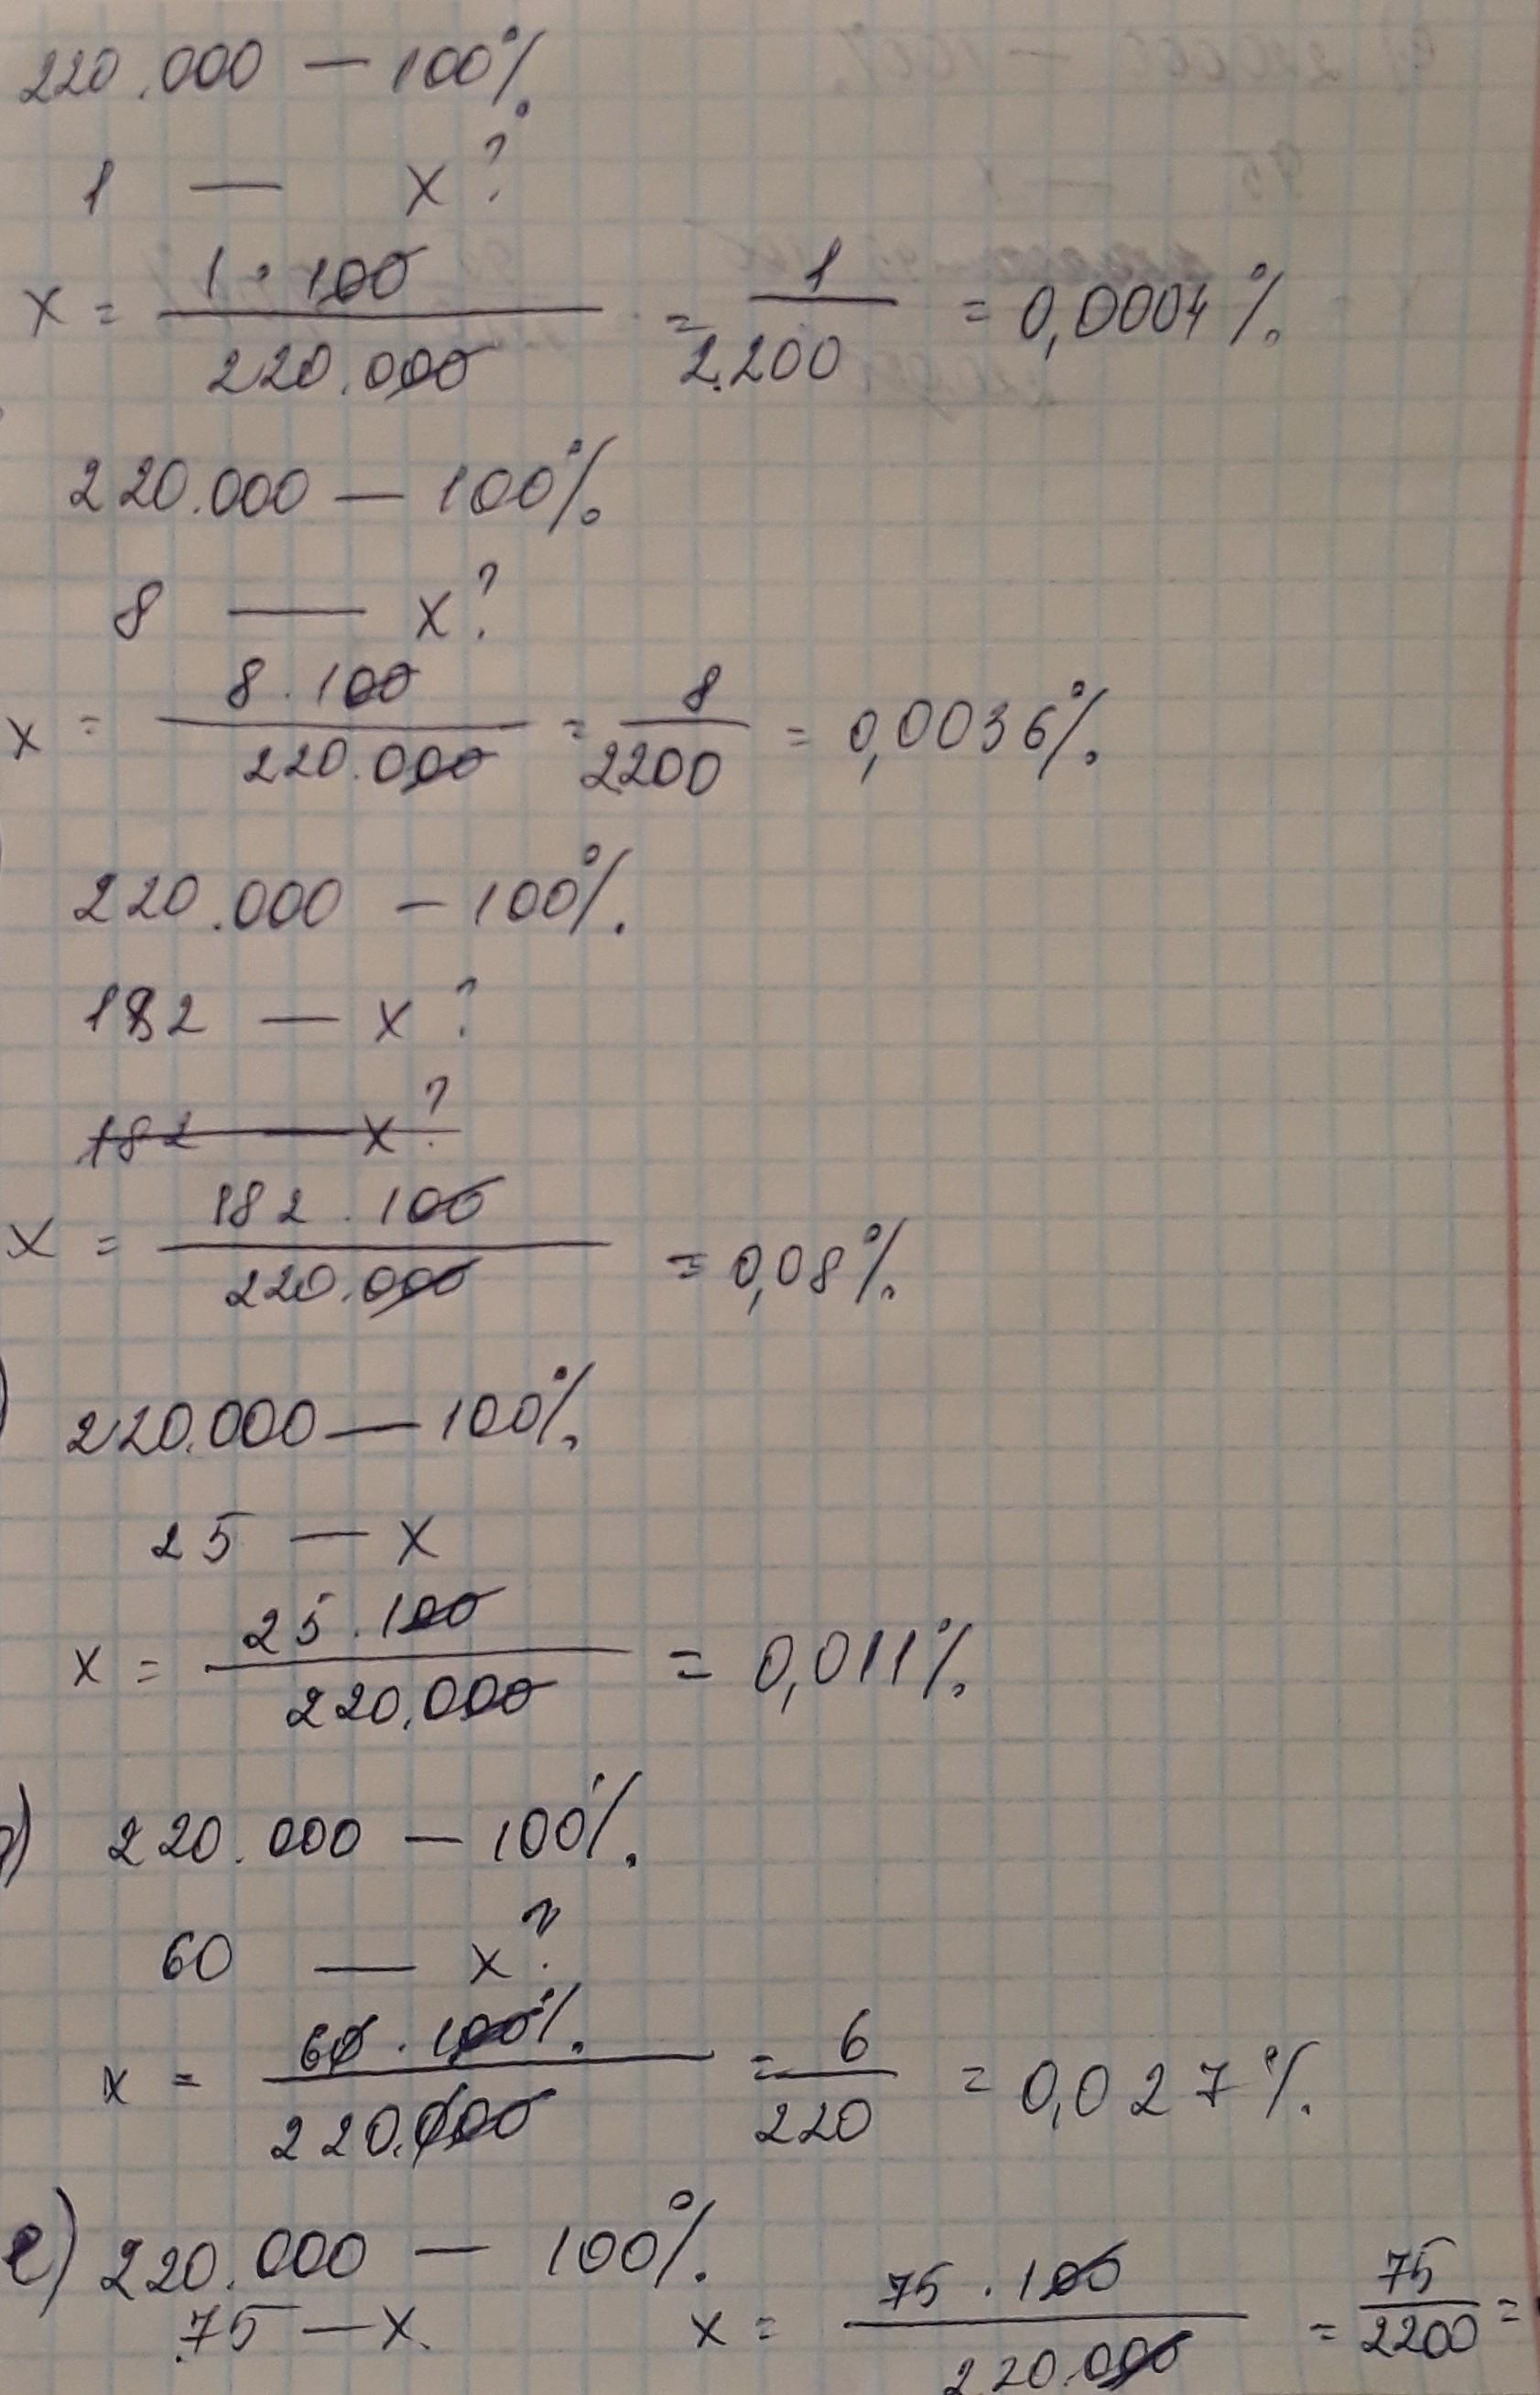 220.000 — 100%
1 — x?
x = 1 · 100 / 220.000 = 1 / 2.200 = 0,0004%
220.000 — 100%
8 — x?
x = 8 · 100 / 220.000 = 8 / 2200 = 0,0036%
220.000 — 100%
182 — x?
182 — x?
x = 182 · 100 / 220.000 = 0,08%
220.000 — 100%
25 — x
x = 25 · 100 / 220.000 = 0,011%
220.000 — 100%
60 — x?
x = 60 · 100% / 220.000 = 6 / 220 = 0,027%
e) 220.000 — 100%
75 — x. x = 75 · 100 / 220.000 = 75 / 2200 =